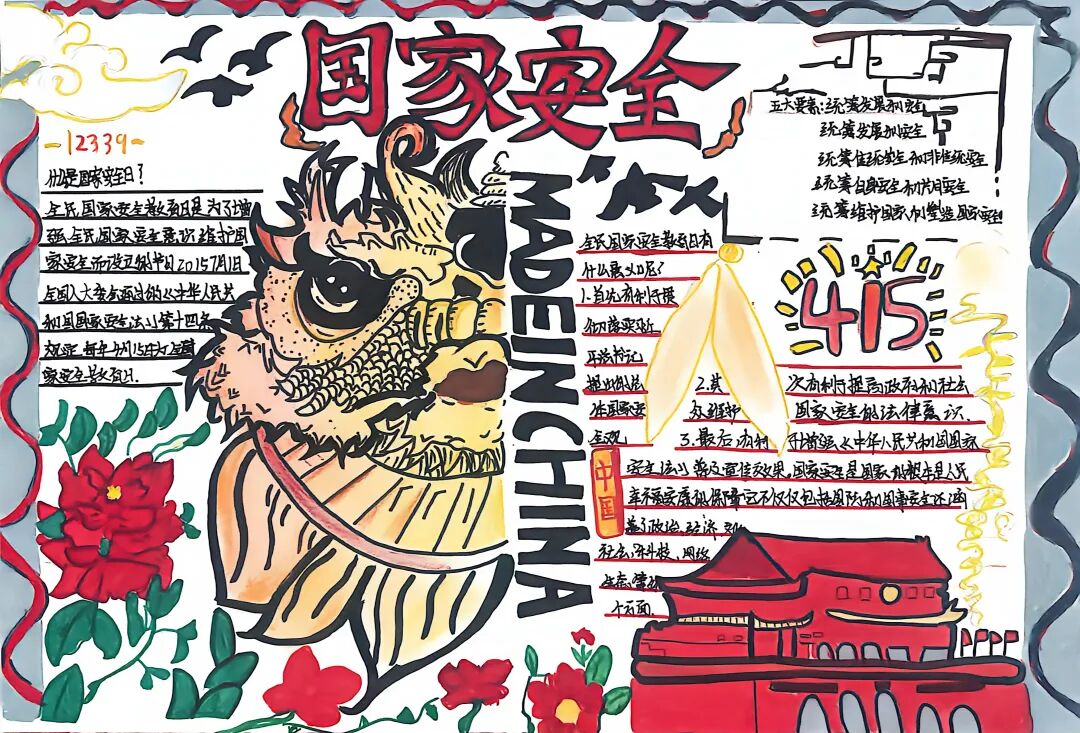 国家安全
-12339-
什么是国家安全日?
全民国家安全教育日是为了增
强全民国家安全意识维护国
家安全而设立的节日20157月1日
全国人大常会通过的《中华人民共
和国国家安全法》第十四条
规定 每年4月15日为全国
家安全教育日.
MADE IN CHINA
五大要素:统筹发展和安全
统筹发展和安全
统筹传统安全和非传统安全
统筹自身安全和共同安全
统筹维护国家和塑造国家安全
415
全民国家安全教育日有
什么意义呢?
1.首先有利于贯
彻落实
总书记
提出的总
体国家安
全观
2.其 次有利于提高政府和社会
国家安全的法律意识.
3.最后有利 于增强《中华人民共和国国家
安全法》普及宣传效果,国家安全是国家的根本是人民
幸福安康的保障它不仅仅包括国防和国土安全还涵
盖了政治,经济
社会,科技,网络
生态,
个方面.
中国